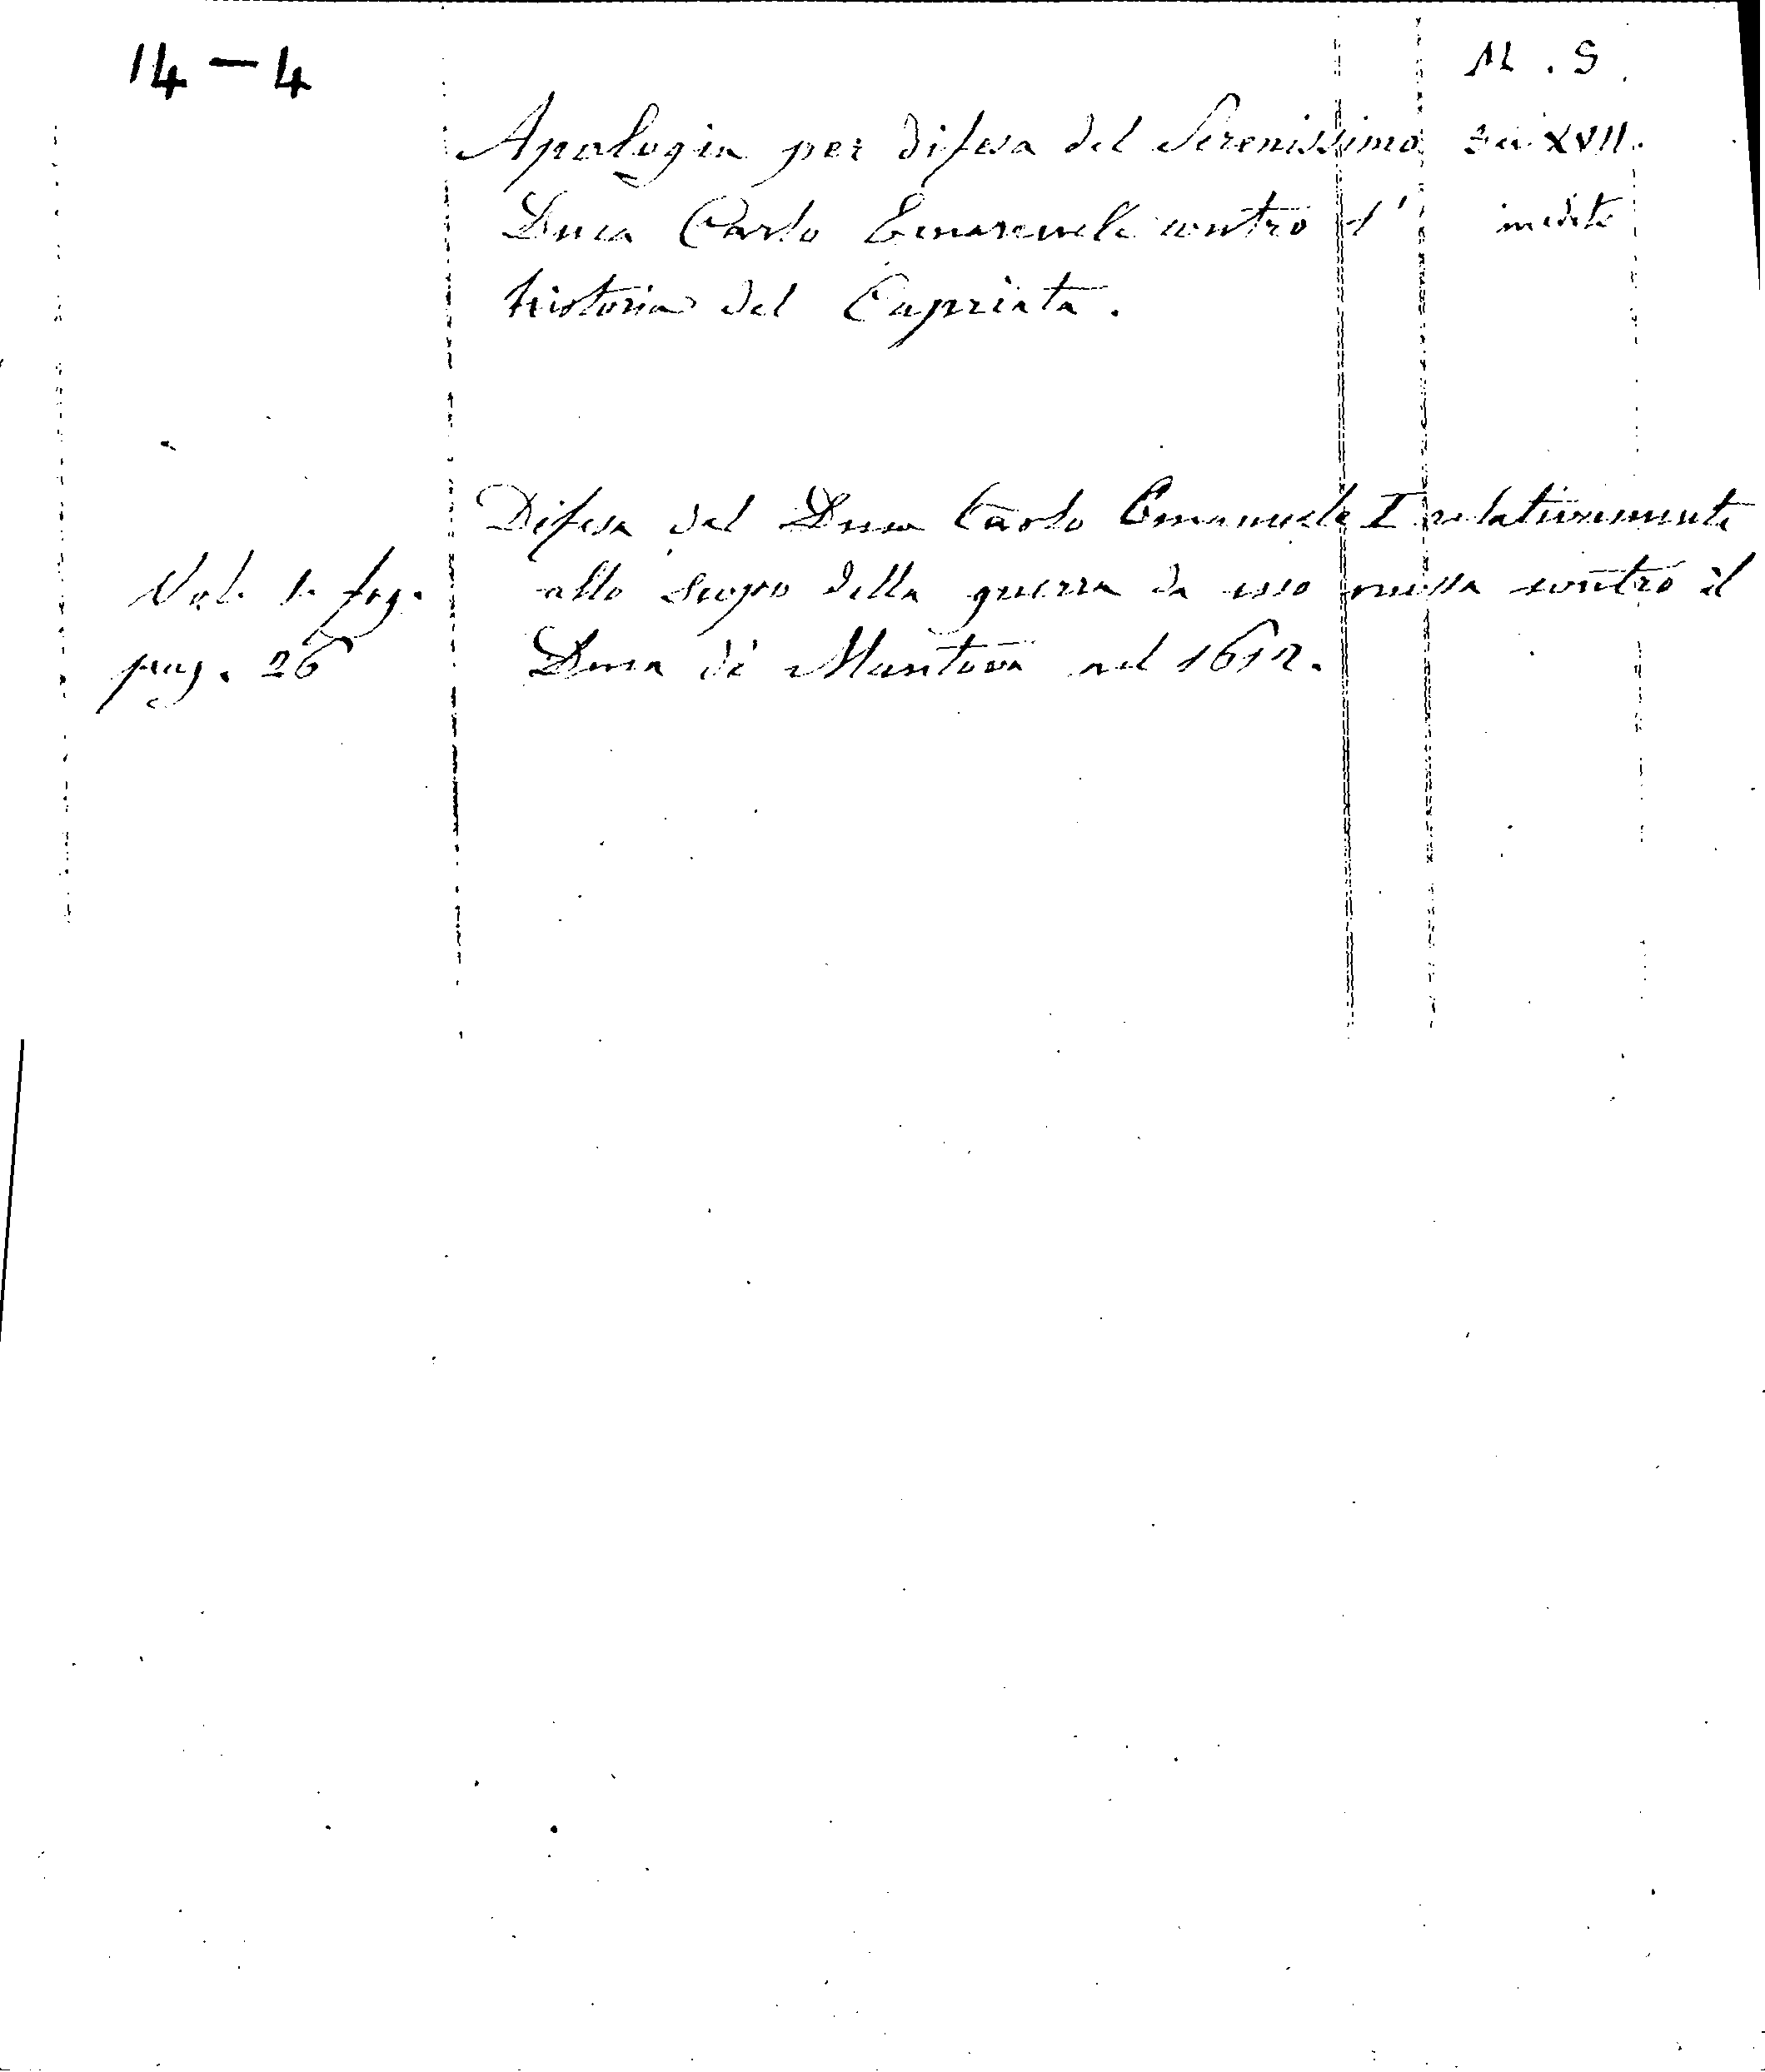 14 – 4
M. S.
Apologia per difesa del Serenissimo
Sec. XVII.
Duca Carlo Emanuele contro l'
inedito
historia del Capriata.
Difesa del Duca Carlo Emanuele I relativamente
Vol. 1. fog.
allo scopo della guerra da esso mossa contro il
pag. 26
Duca di Mantova nel 1612.